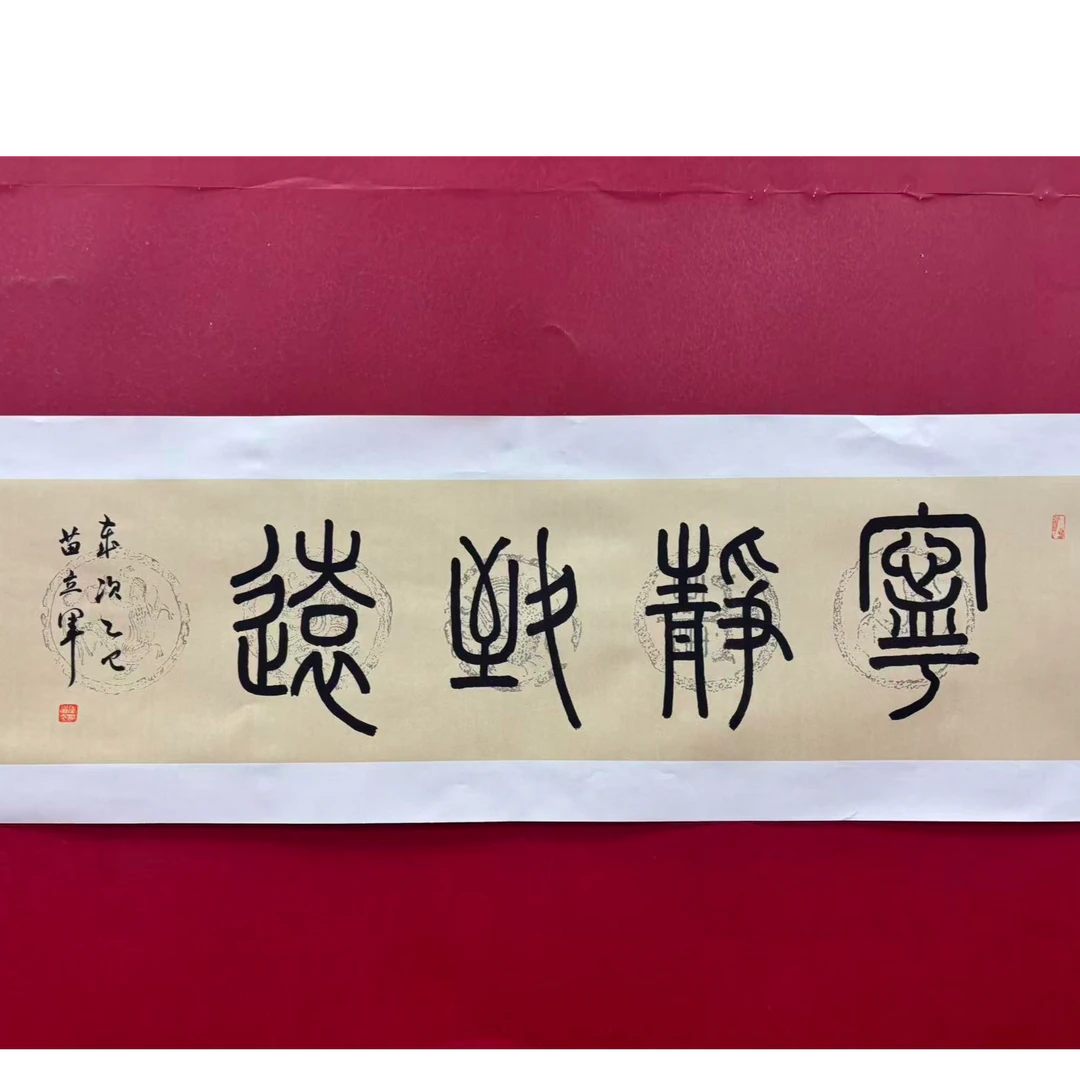 寧靜致遠
歲次乙巳
苗立軍